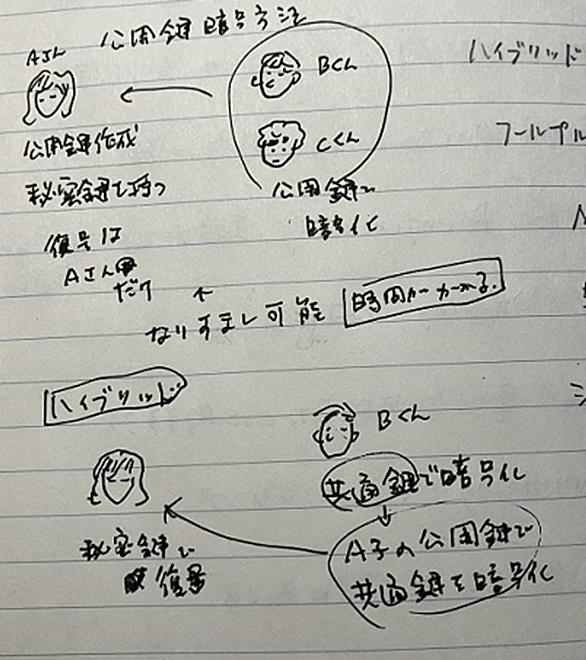 公開鍵暗号方法
Aさん
Bくん
Cくん
公開鍵作成
秘密鍵も持つ
公開鍵で
暗号化
復号は
Aさん
だけ
なりすまし可能
時間がかかる.
ハイブリッド
フールプル
ハイブリッド
Bくん
共通鍵で暗号化
A子の公開鍵で
共通鍵を暗号化
秘密鍵で
復号